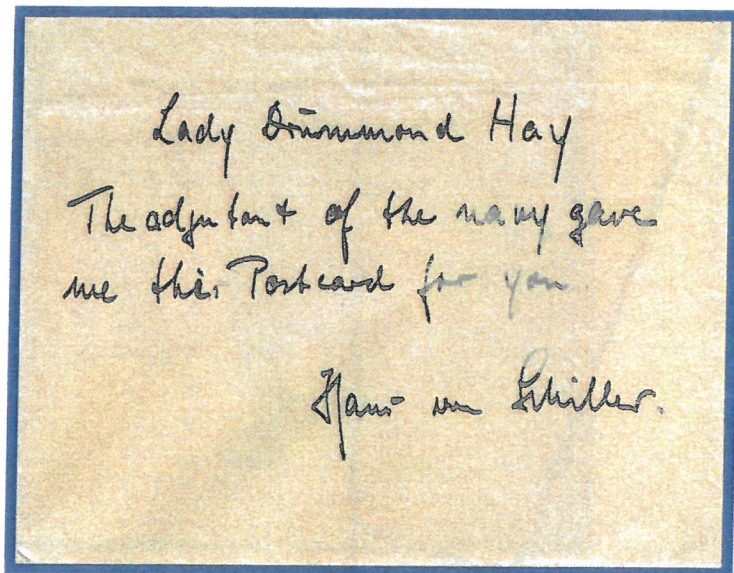 Lady Drummond Hay
The adjutant of the navy gave
me this Postcard for you.
Hans von Schiller.